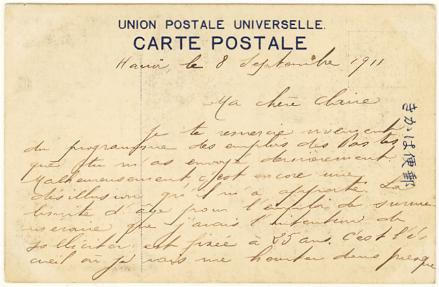 UNION POSTALE UNIVERSELLE.
CARTE POSTALE
Hanoi le 8 Septembre 1911
Ma chère Claire
Je te remercie vivement
du programme des emplois des Postes
que tu m'as envoyé dernièrement
Malheureusement c'est encore une
désillusion qu'il m'a apporté. La
limite d'âge pour l'emploi de surnu-
meraire que j'avais l'intention de
solliciter est fixée à 25 ans. C'est l'é-
cueil où je vais me heurter dans presque
きかは便郵